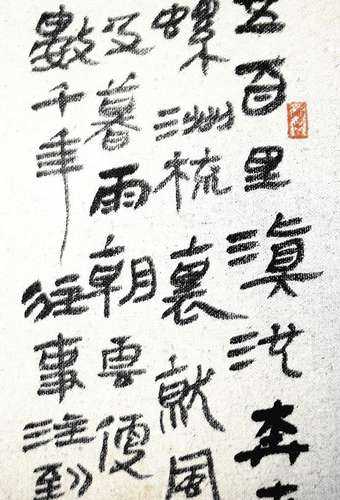 五百里滇池奔
螺洲梳裹就風
及暮雨朝雲便
數千年往事注到